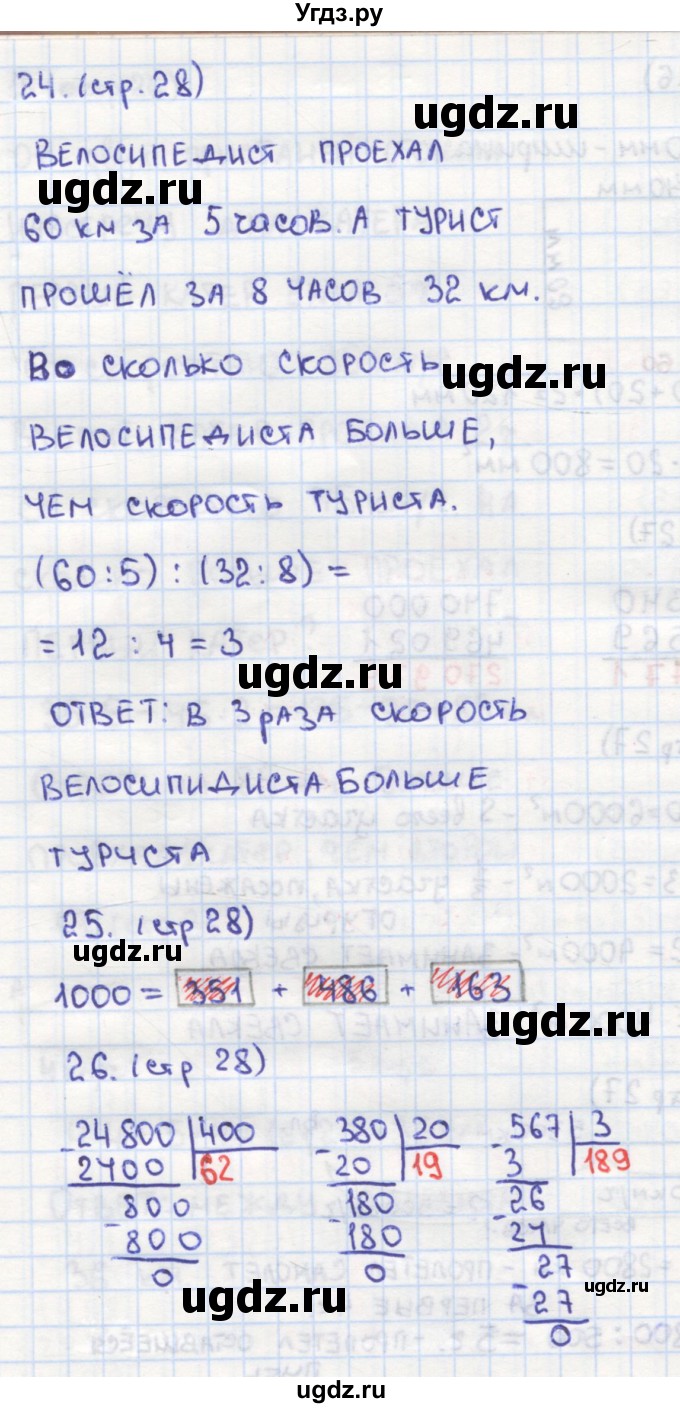 Угдз.ру
24. (стр. 28)
ugdz.ru
ВЕЛОСИПЕДИСТ ПРОЕХАЛ
ugdz.ru
60 КМ ЗА 5 часов. А ТУРИСТ
ПРОШЁЛ ЗА 8 ЧАСОВ 32 КМ.
Во СКОЛЬКО СКОРОСТЬ
ugdz.ru
ВЕЛОСИПЕДИСТА БОЛЬШЕ,
ЧЕМ СКОРОСТЬ ТУРИСТА.
(60:5) : (32:8) =
= 12 : 4 = 3
ugdz.ru
ОТВЕТ: В 3 раЗА СКОРОСТЬ
ВЕЛОСИПИДИСТА БОЛЬШЕ
ТУРИСТА
25. (стр 28)
ugdz.ru
1000 = 351 + 486 + 163
ugdz.ru
26. (стр 28)
24800 400
2400 62
800
800
0
380 20
20 19
180
180
0
567 3
3 189
26
24
27
27
0
ugdz.ru
ugdz.ru
ugdz.ru